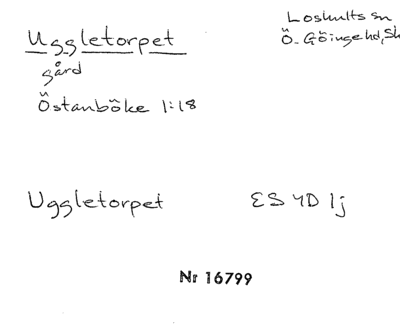 Uggletorpet
Loshults sn
Ö. Göinge hd, Sk
gård
Östanböke 1:18
Uggletorpet ES 4D 1j
Nr 16799